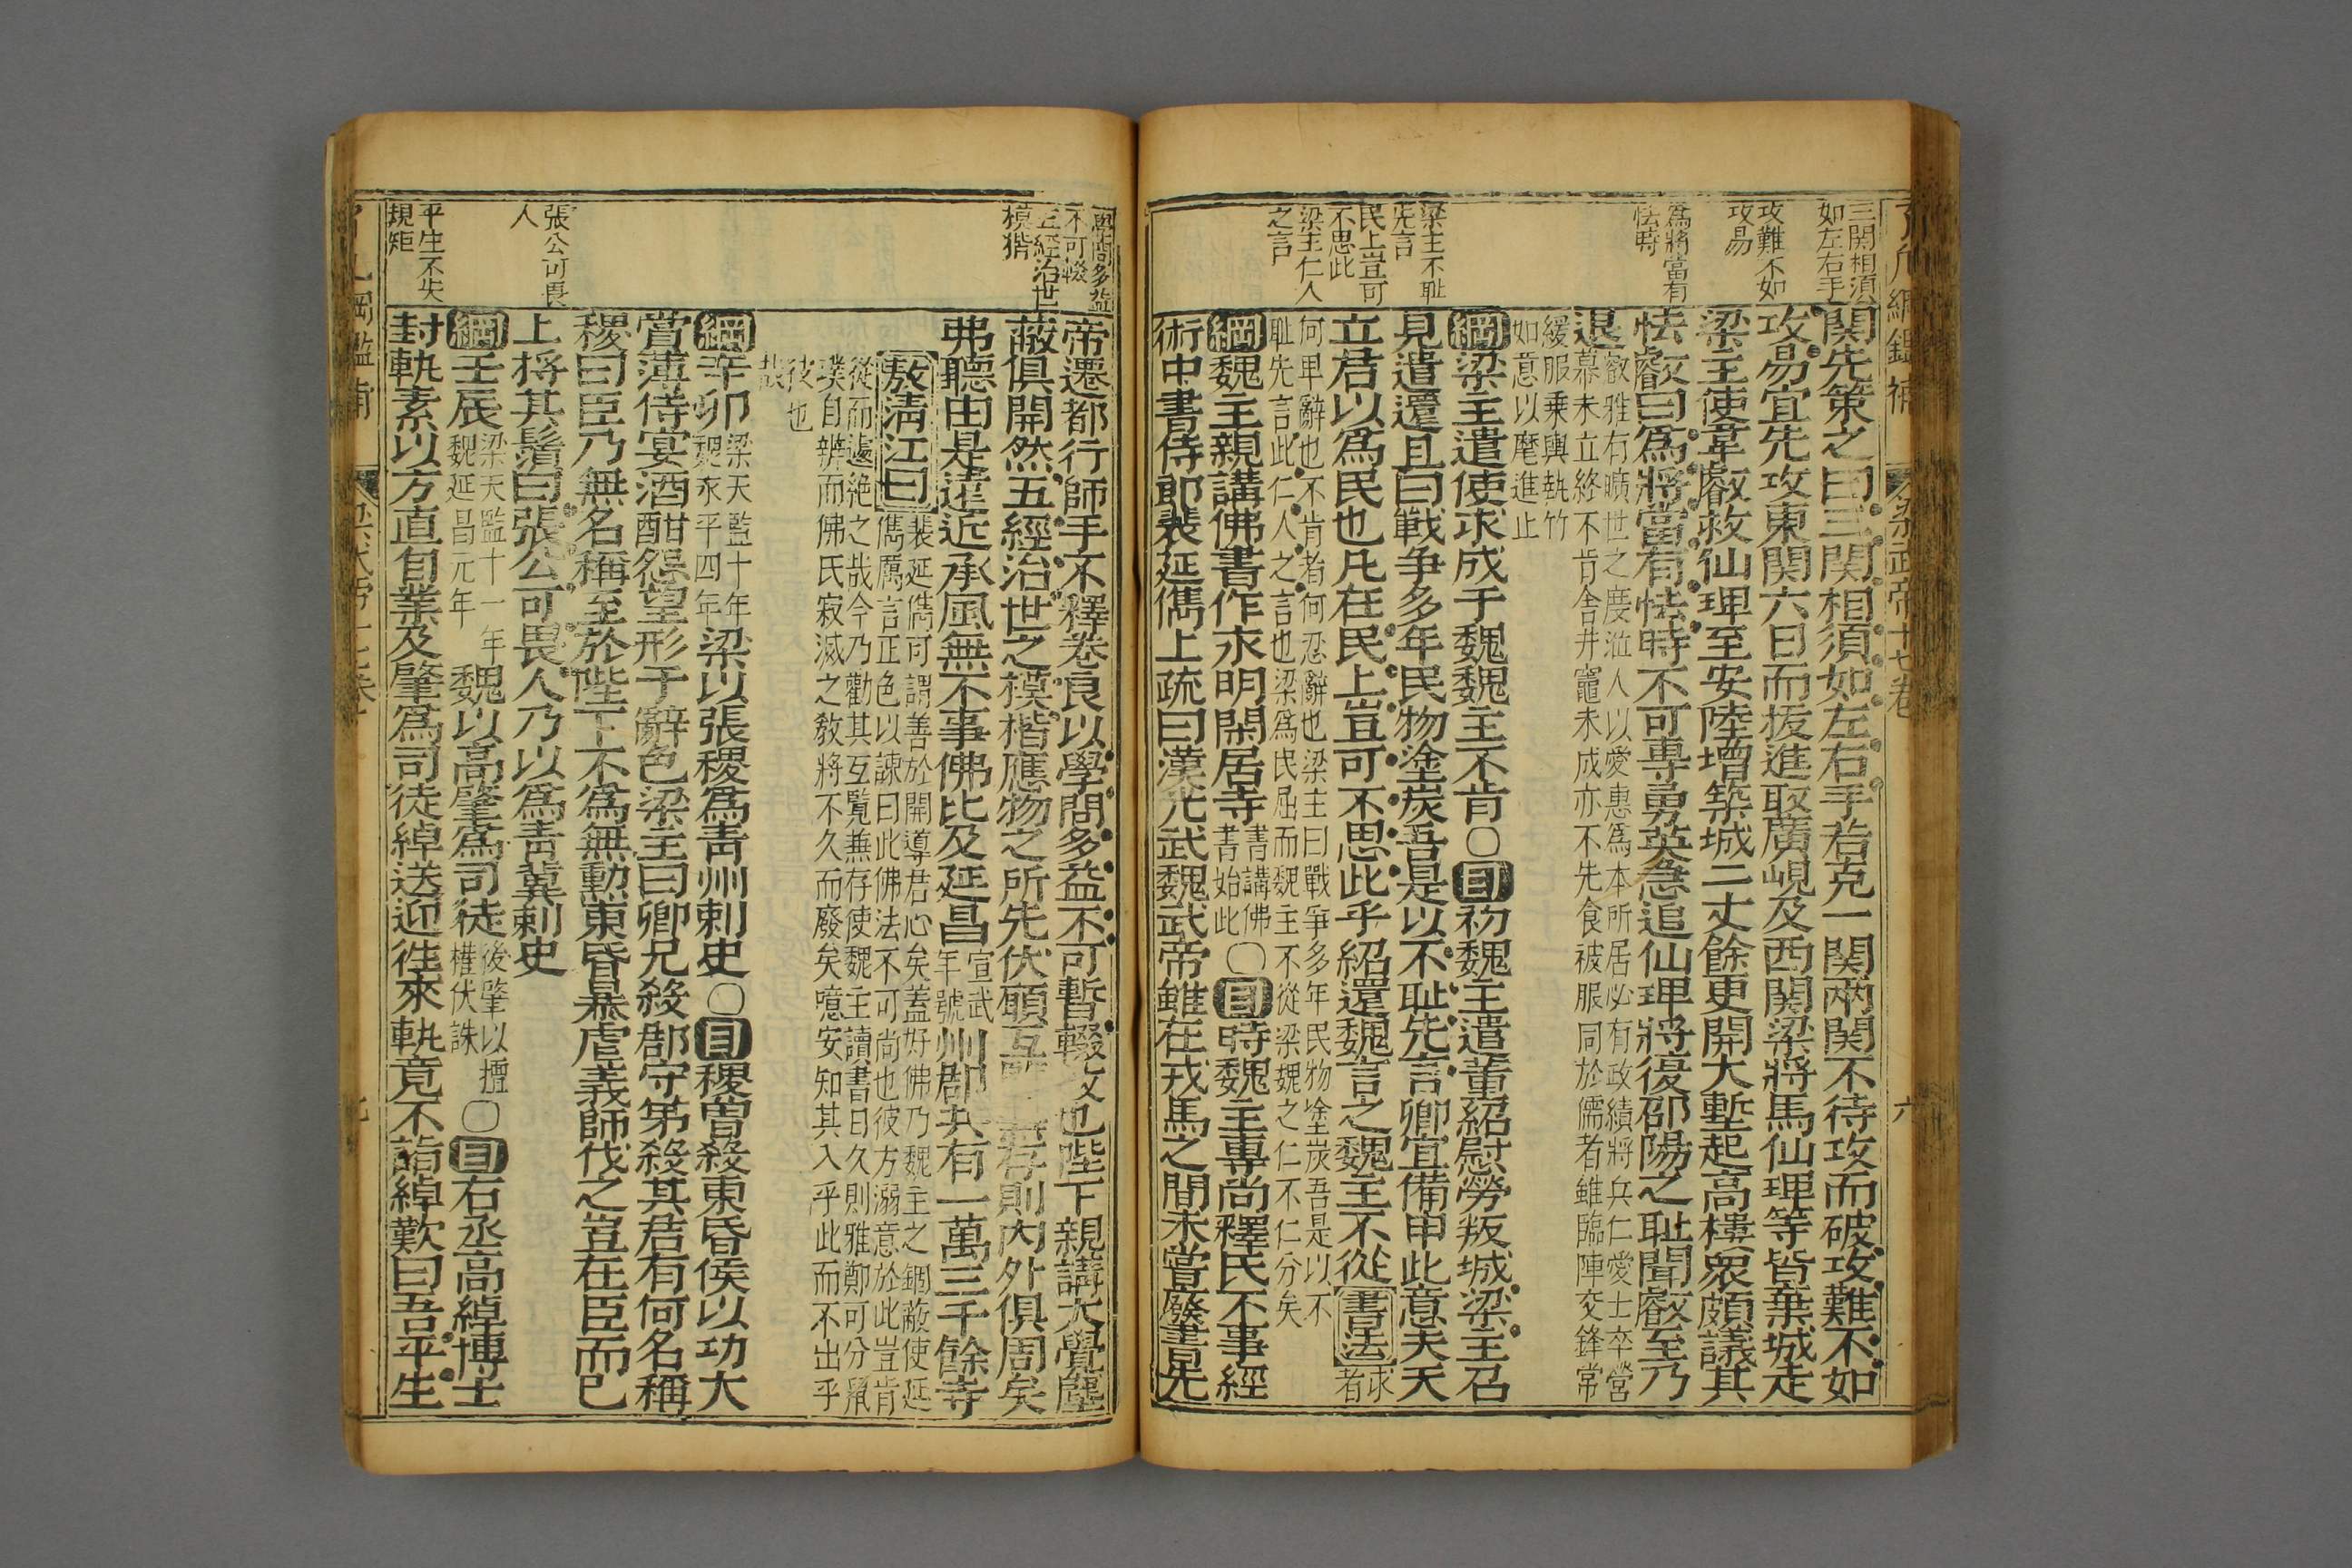 三関相湏
如左右手
攻難不如
攻易
為將當有
怯時
梁主不耻
先言
民上豈可
不思此
梁主仁人
之言
関先策之曰三関相須如左右手若克一関兩関不待攻而破攻難不如
攻易宜先攻東関六日而拔進取廣峴及西関梁將馬仙琕等皆棄城走
梁主使韋叡救仙琕至安陸增築城二丈餘更開大塹起高樓衆頗議其
怯叡曰爲將當有怯時不可專勇英急追仙琕將復邵陽之耻聞叡至乃
退
叡雅有曠世之度涖人以愛惠爲本所居必有政績將兵仁愛士卒營
幕未立終不肯舍井竈未成亦不先食被服同於儒者雖臨陣交鋒常
緩服乗輿執竹
如意以麾進止
綱梁主遣使求成于魏魏主不肯○目初魏主遣董紹慰勞叛城梁主召
見遣還且曰戰争多年民物塗炭吾是以不耻先言卿宜備申此意夫天
立君以爲民也凡在民上豈可不思此乎紹還魏言之魏主不從書法求者
何卑辭也不肯者何忍辭也梁主曰戰爭多年民物塗炭吾是以不
耻先言此仁人之言也梁爲民屈而魏主不從梁魏之仁不仁分矣
綱魏主親講佛書作永明閑居寺書講佛書始此○目時魏主專尚釋氏不事經
術中書侍郎裴延儁上疏曰漢光武魏武帝雖在戎馬之間未嘗廢書先
了凡綱鑑補
梁武帝 十七卷
六
學問多益
不可輟
五經治世
模楷
張公可畏
人
平生不失
規矩
帝遷都行師手不釋卷良以學問多益不可暫輟故也陛下親講大覺塵
蔽俱開然五經治世之模楷應物之所先伏願互覽兼存則內外俱周矣
弗聽由是遠近承風無不事佛比及延昌宣武年號州郡共有一萬三千餘寺
敖淸江曰
裴延儁可謂善於開導君心矣蓋好佛乃魏主之錮蔽使延
儁厲言正色以諫曰此佛法不可尚也彼方溺意於此豈肯
從而遽絶之哉今乃勸其互覽兼存使魏主讀書日久則雅鄭可分鼠
璞自辨而佛氏寂滅之敎將不久而廢矣噫安知其入乎此而不出乎
彼也
哉
綱辛卯梁天監十年魏永平四年梁以張稷爲靑州刺史○目稷曾殺東昏侯以功大
賞薄侍宴酒酣怨望形于辭色梁主曰卿兄殺郡守弟殺其君有何名稱
稷曰臣乃無名稱至於陛下不爲無勲東昏暴虐義師伐之豈在臣而已
上捋其鬚曰張公可畏人乃以爲靑冀刺史
綱壬辰梁天監十一年魏延昌元年魏以高肇爲司徒後肇以擅權伏誅○目右丞高綽博士
封軌素以方直自業及肇爲司徒綽送迎徃來軌竟不詣綽歎曰吾平生
綱鑑補
七